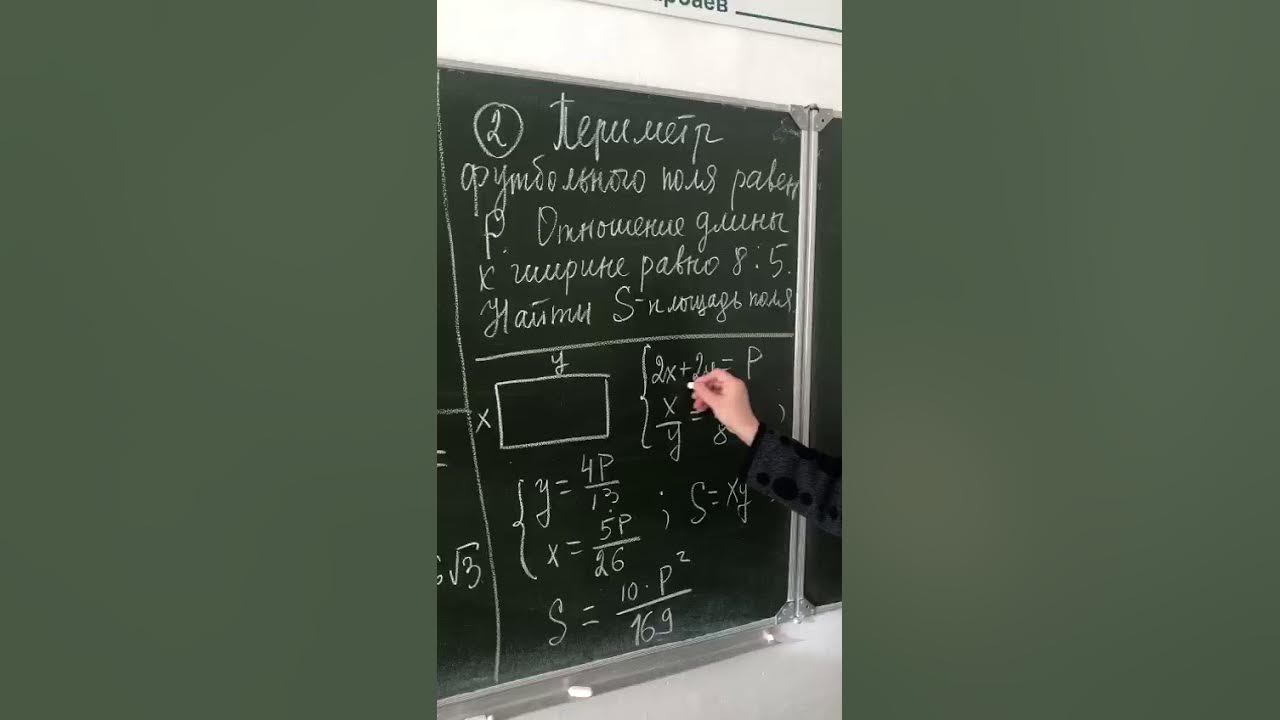 ② Периметр
футбольного поля равен
P. Отношение длины
к ширине равно 8:5.
Найти S-площадь поля
y
x
2x+2y=P
x/y = /8 ;
y = 4P/13
x = 5P/26 ; S=xy
S = 10·P²/169
=
√3